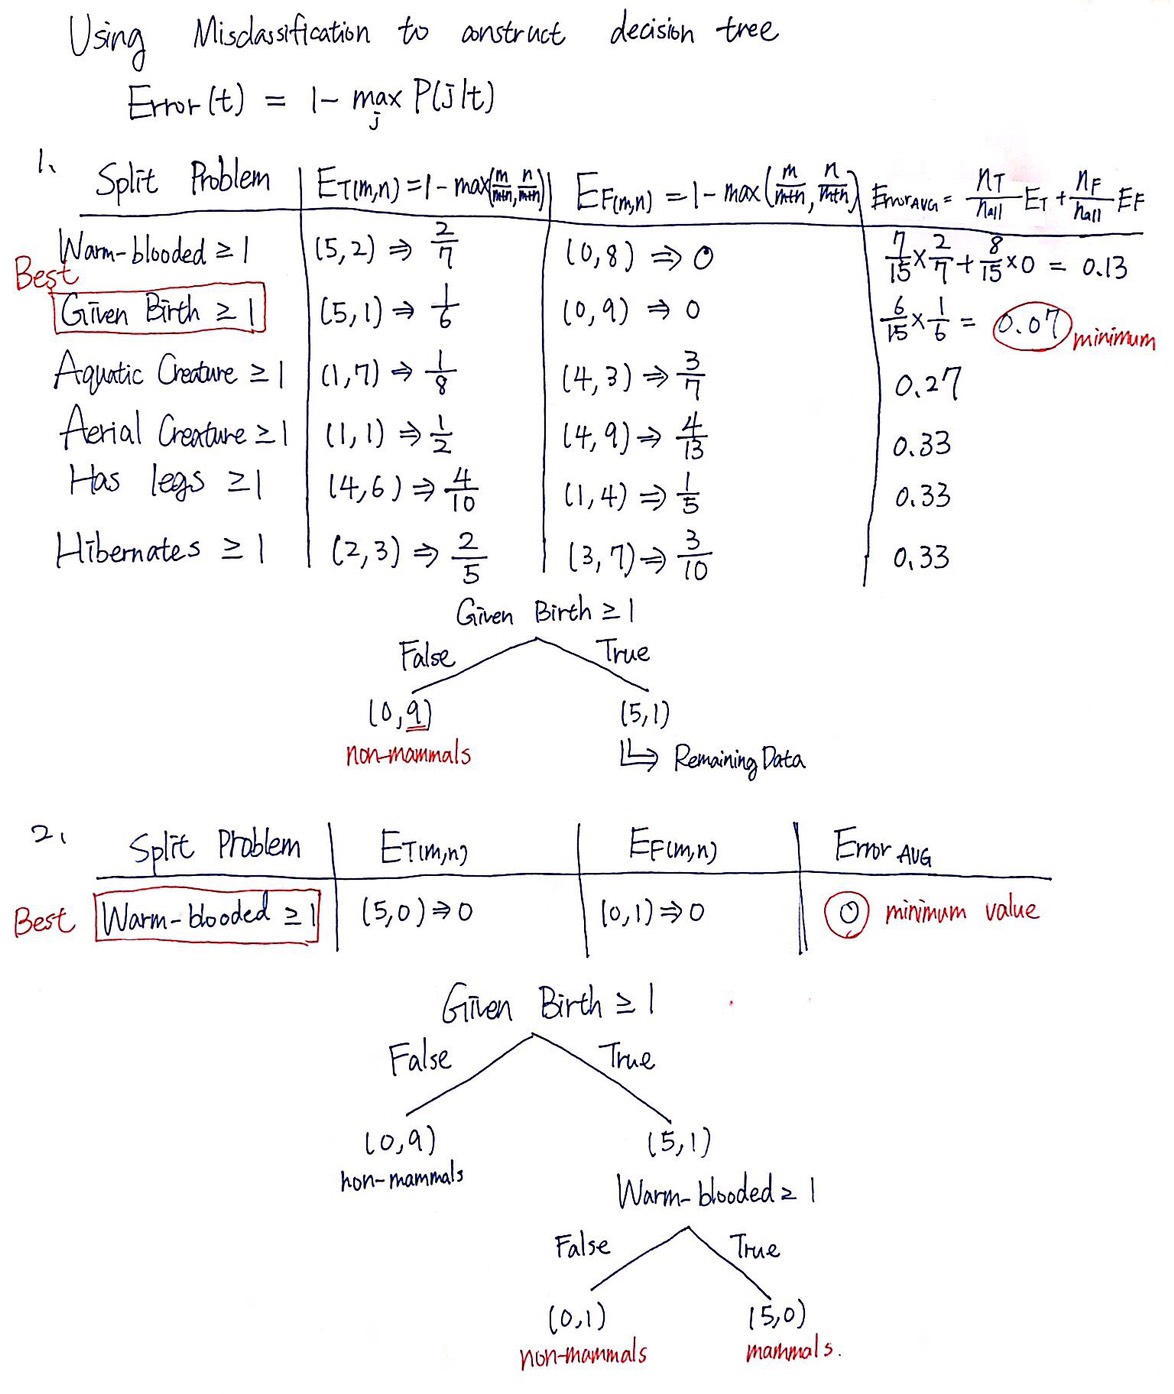 Using Misclassification to construct decision tree
Error(t) = 1- max P(j|t)
j
1. Split Problem | ET(m,n) = 1 - max(m/m+n, n/m+n) | EF(m,n) = 1 - max(m/m+n, n/m+n) | ErrorAVG = nT/nall ET + nF/nall EF
Warm-blooded ≥ 1 (5,2) ⇒ 2/7 (0,8) ⇒ 0 7/15 × 2/7 + 8/15 × 0 = 0.13
Best
Given Birth ≥ 1 (5,1) ⇒ 1/6 (0,9) ⇒ 0 6/15 × 1/6 = 0.07 minimum
Aquatic Creature ≥ 1 (1,7) ⇒ 1/8 (4,3) ⇒ 3/7 0.27
Aerial Creature ≥ 1 (1,1) ⇒ 1/2 (4,9) ⇒ 4/13 0.33
Has legs ≥ 1 (4,6) ⇒ 4/10 (1,4) ⇒ 1/5 0.33
Hibernates ≥ 1 (2,3) ⇒ 2/5 (3,7) ⇒ 3/10 0.33
Given Birth ≥ 1
False True
(0,9) (5,1)
non-mammals Remaining Data
2. Split Problem ET(m,n) EF(m,n) Error AVG
Best Warm-blooded ≥ 1 (5,0) ⇒ 0 (0,1) ⇒ 0 0 minimum value
Given Birth ≥ 1
False True
(0,9) (5,1)
non-mammals
Warm-blooded ≥ 1
False True
(0,1) (5,0)
non-mammals mammals.